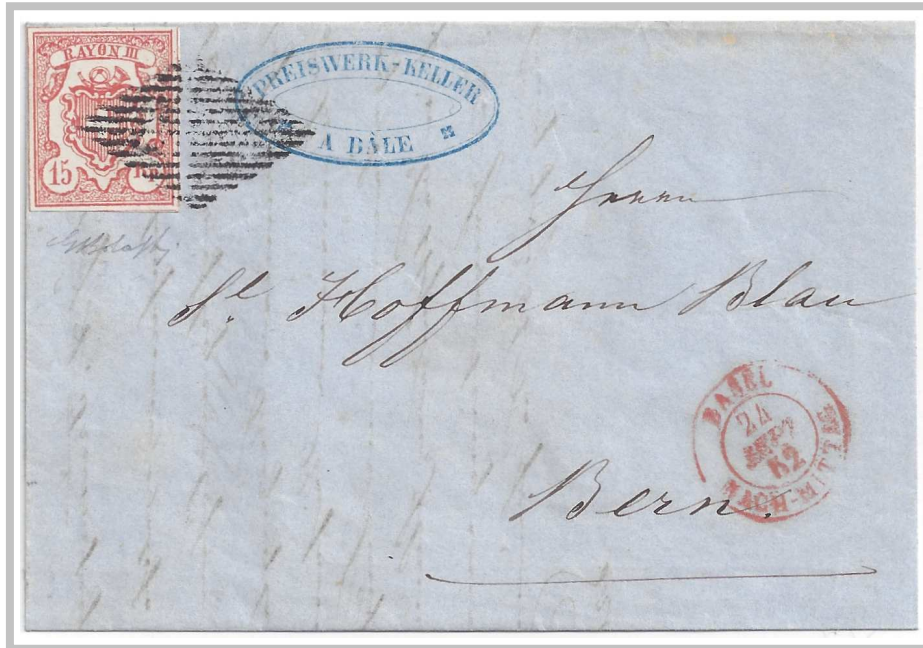 RAYON III
15 Rp.
PREISWERK-KELLER
A BÂLE
Herrn
Sl. Hoffmann Blau
Bern.
BASEL
24
SEPT
52
NACH-MITTAG